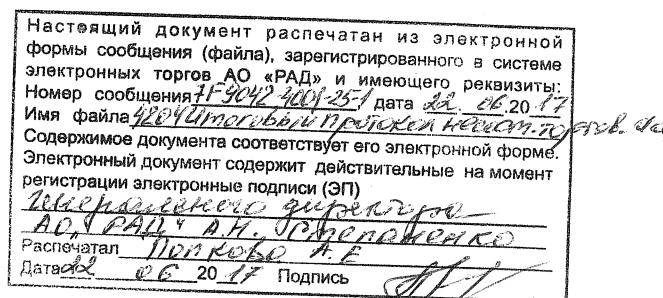 Настоящий документ распечатан из электронной
формы сообщения (файла), зарегистрированного в системе
электронных торгов АО «РАД» и имеющего реквизиты:
Номер сообщения 7F9042 4001-25-1 дата 22. 06.2017
Имя файла 42041 Итоговый протокол несост. торгов.
Содержимое документа соответствует его электронной форме.
Электронный документ содержит действительные на момент
регистрации электронные подписи (ЭП)
Генерального директора
АО "РАД" А.Н. Степаненко
Распечатал Попково А.Е
Дата 22 06 2017 Подпись